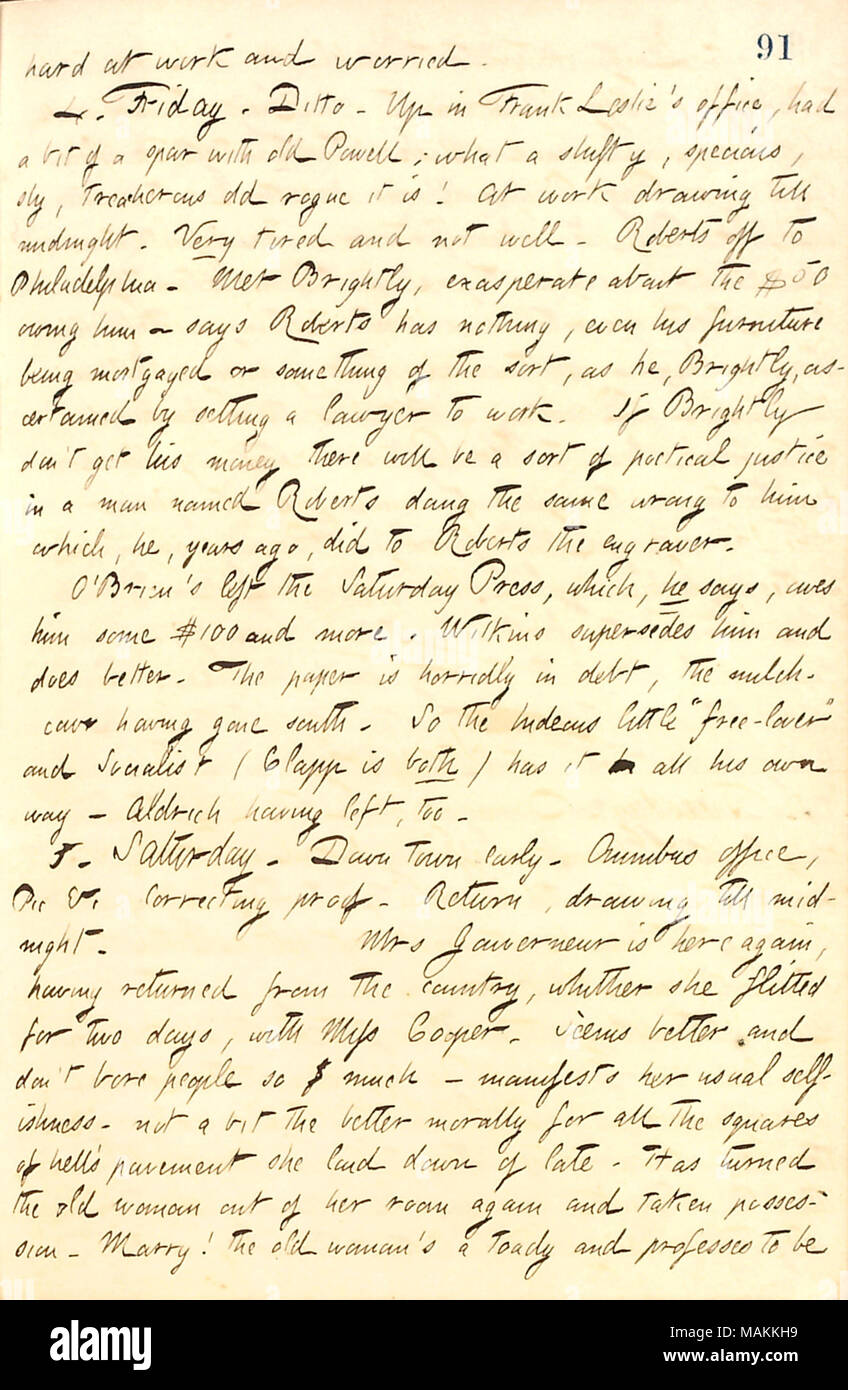 91
hard at work and worried.
4. Friday. Ditto. Up in Frank Leslie's office, had
a bit of a spar with old Powell; what a shifty, specious,
sly, treacherous old rogue it is! At work drawing till
midnight. Very tired and not well. Roberts off to
Philadelphia. Met Brightly, exasperate about the $50
owing him — says Roberts has nothing, even his furniture
being mortgaged or something of the sort, as he, Brightly, as-
certained by setting a lawyer to work. If Brightly
don't get his money there will be a sort of poetical justice
in a man named Roberts doing the same wrong to him
which, he, years ago, did to Roberts the engraver.
O'Brien's left the Saturday Press, which, he says, owes
him some $100 and more. Wilkins supersedes him and
does better. The paper is horridly in debt, the milch-
cow having gone south. So the hideous little "free-lover"
and Socialist (Clapp is both) has it all his own
way — Aldrich having left, too.
5. Saturday. Down town early. Omnibus office,
Pic &c correcting proof. Return, drawing till mid-
night. Mrs Gouverneur is here again,
having returned from the country, whither she flitted
for two days, with Miss Cooper. Seems better and
don't bore people so much — manifests her usual self-
ishness. not a bit the better morally for all the squares
of hell's pavement she laid down of late. Has turned
the old woman out of her room again and taken posses-
sion. Marry! the old woman's a toady and professes to be
alamy
Image ID: MAKKH9
www.alamy.com